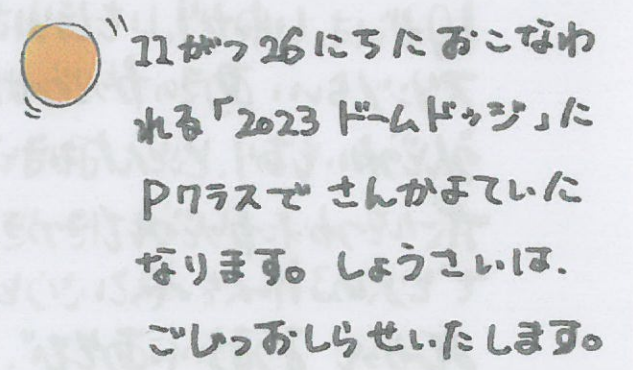 11がつ26にちに おこなわ
れる「2023 ドームドッジ」に
Pクラスで さんかよていに
なります。しょうさいは、
ごじつおしらせいたします。